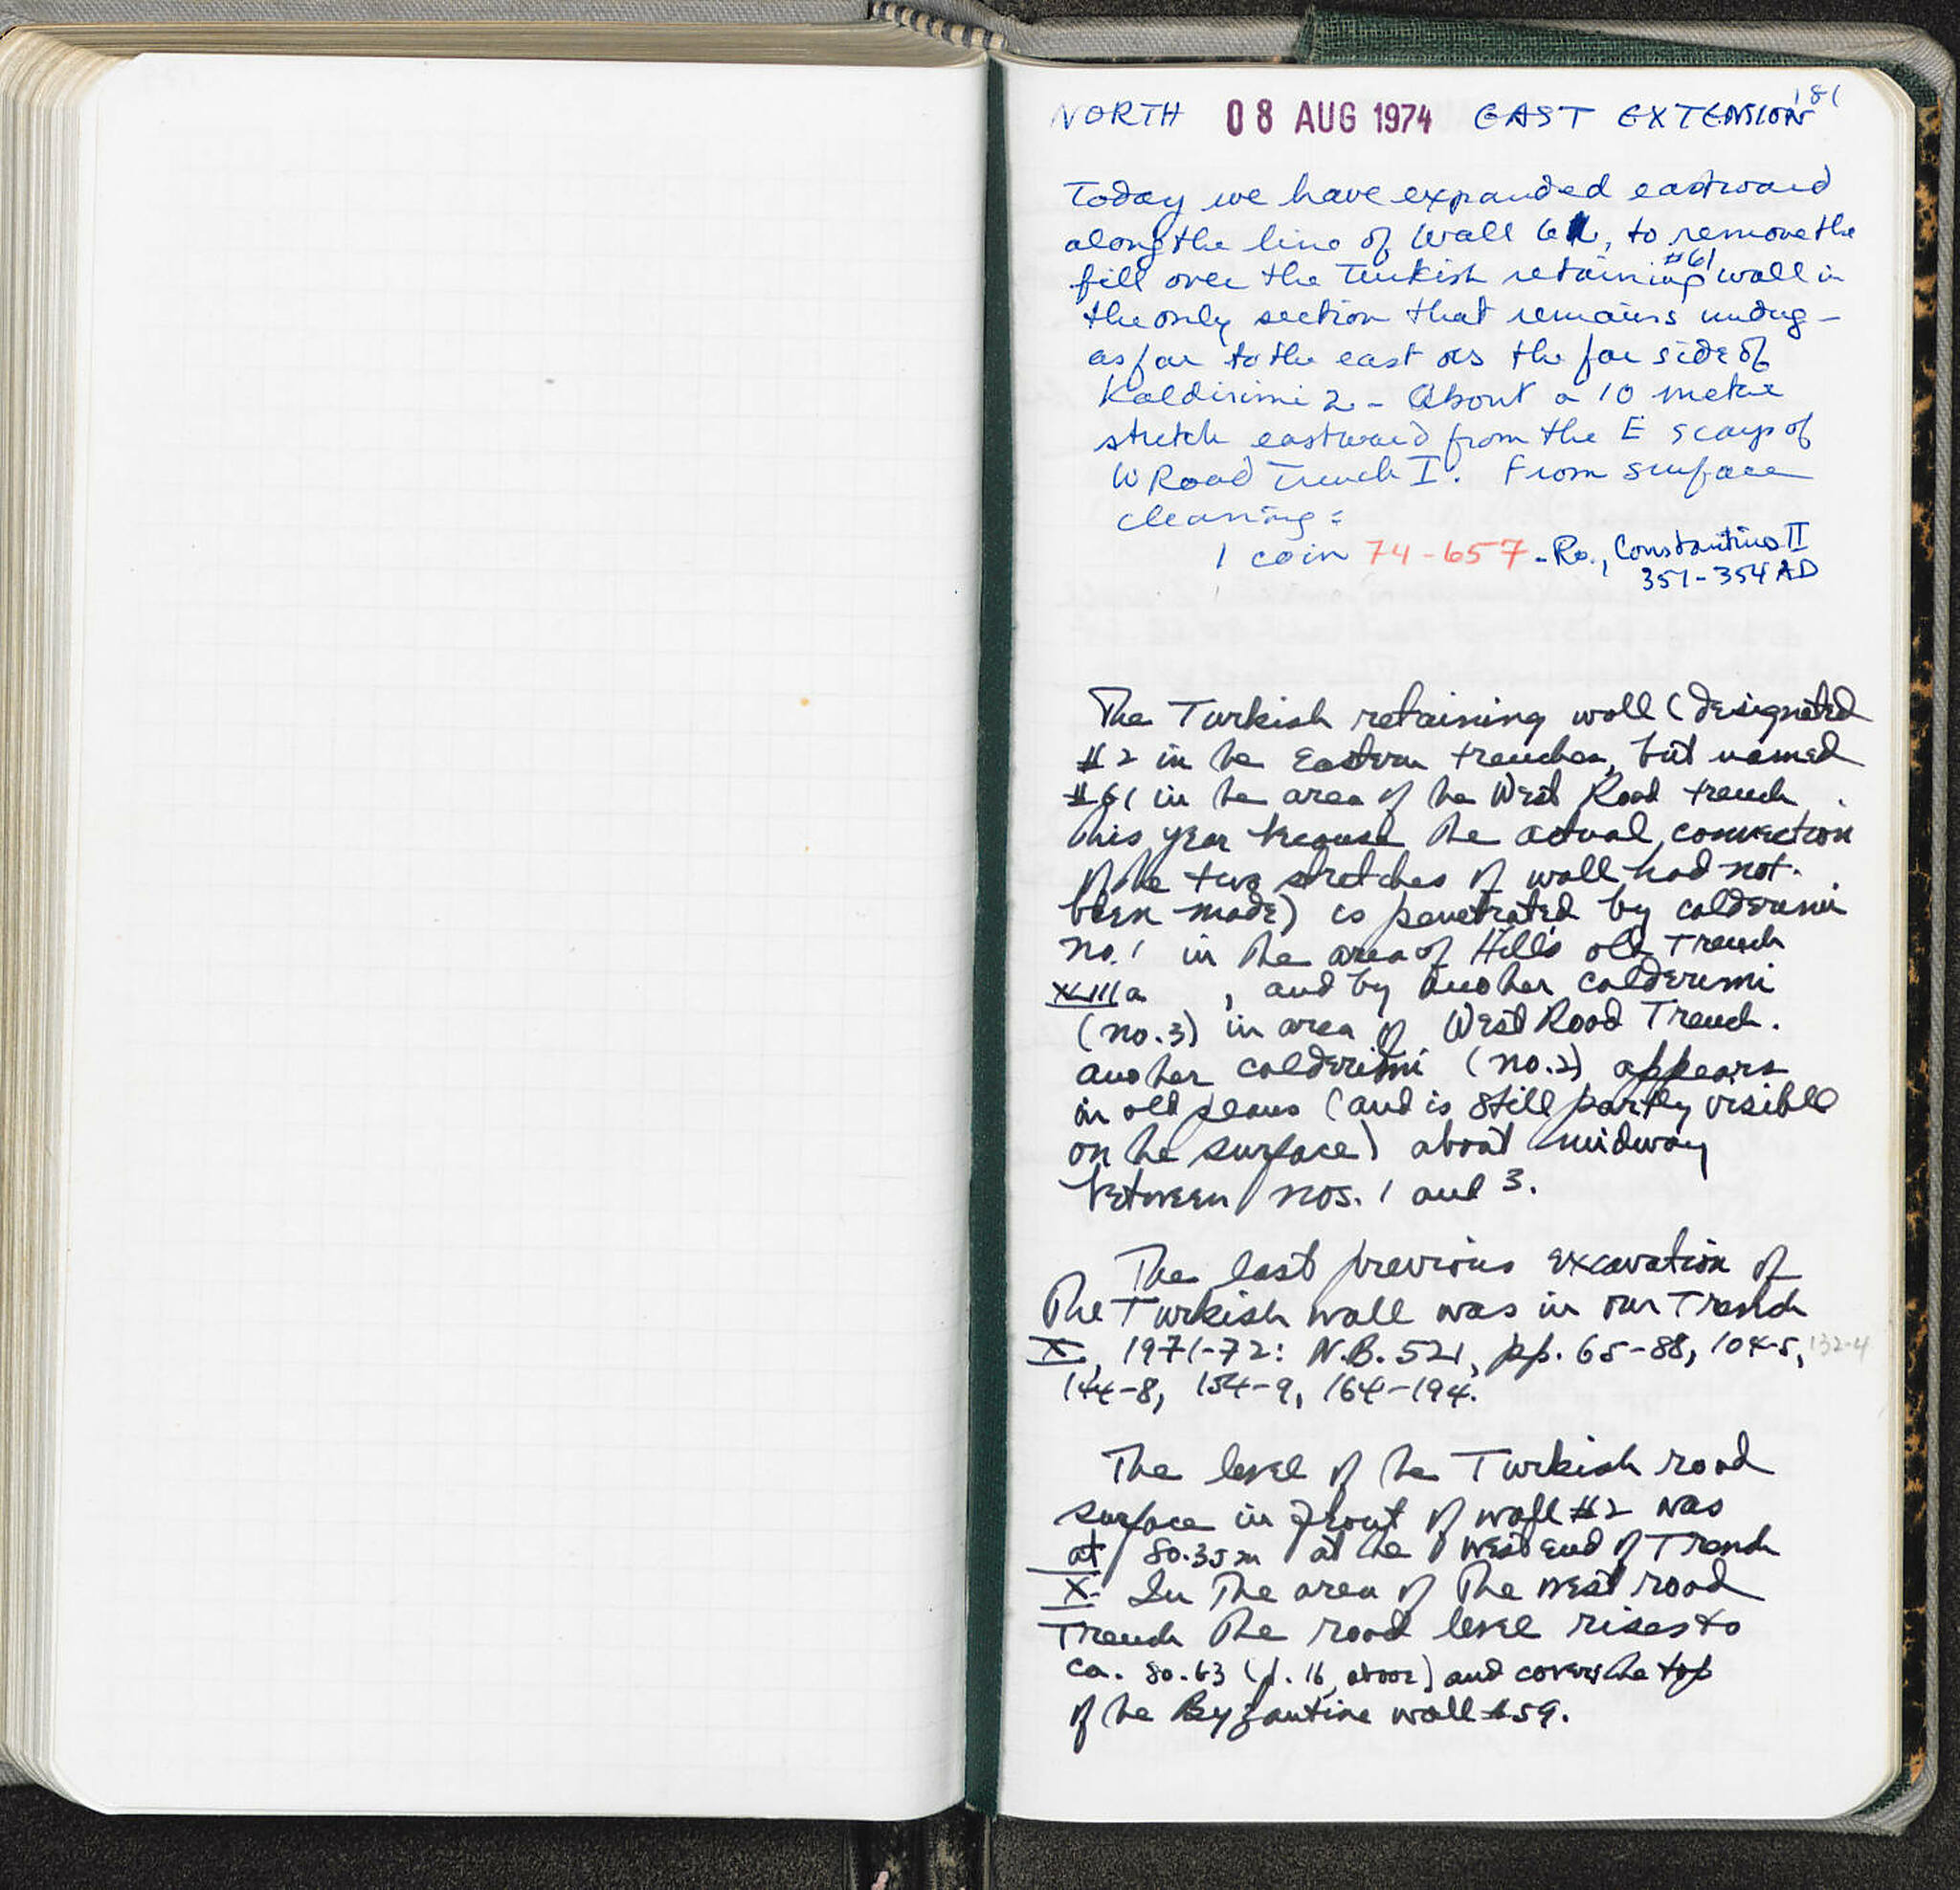 181
NORTH 08 AUG 1974 EAST EXTENSION
Today we have expanded eastward
along the line of Wall 61, to remove the
fill over the Turkish retaining #61 wall in
the only section that remains undug -
as far to the east as the far side of
Kaldirimi 2 - About a 10 metre
stretch eastward from the E scarp of
W Road Trench I. From surface
cleaning:
1 coin 74-657 - Ro., Constantius II
351-354 AD
The Turkish retaining wall (designated
#2 in the Eastern trenches, but named
#61 in the area of the West Road trench
this year because the actual connection
of the two stretches of wall had not
been made) is penetrated by calderimi
no. 1 in the area of Hill's old Trench
XIIIa , and by another calderimi
(no. 3) in area of West Road Trench.
another calderimi (no. 2) appears
in old plans (and is still partly visible
on the surface) about midway
between nos. 1 and 3.
The last previous excavation of
The Turkish wall was in our Trench
X, 1971-72: N.B. 521, pp. 65-88, 104-5, 132-4
144-8, 154-9, 164-194.
The level of the Turkish road
surface in front of wall #2 was
at 80.35m at the west end of Trench
X. In the area of the west road
Trench the road level rises to
ca. 80.63 (p. 16, above) and covers the top
of the Byzantine wall #59.